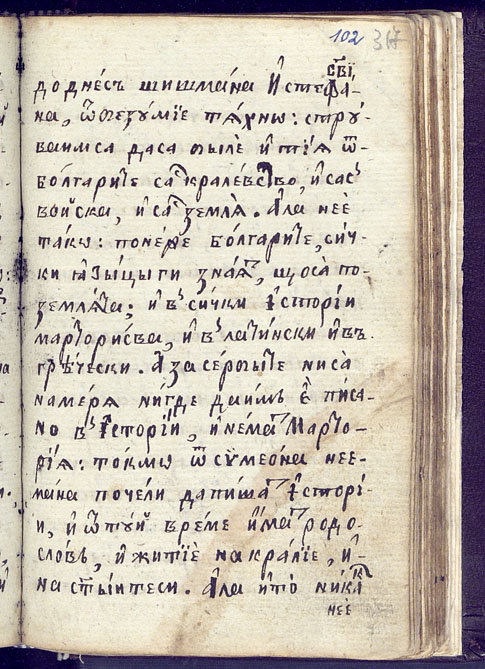 102 317
до днесъ шишмана и стефа- свї,
на, ѿ безумїе тѧхно: стру́-
ваимса даса были и тїѧ ѿ
болгарите са кралевство, и сас
воиска, и са землѧ. Але нее
тако: понеже болгарите, сич-
ки ꙗзыцыги знаѧт, щоса по
землѧта; и въ сички їсторїи
марторисва, и въ латински и въ
гречески. А за сербыте ниса
намерѧ нигде даимъ є писа-
но въ їсторїи, и нема марто-
рїѧ: токмо ѿ сумеона нее-
мана почели да пишат їсторї-
и, и ѿ туй време имат родо-
словъ, и житїе на кралїе, и
на ст҃ыитеси. Але и то никак
нее